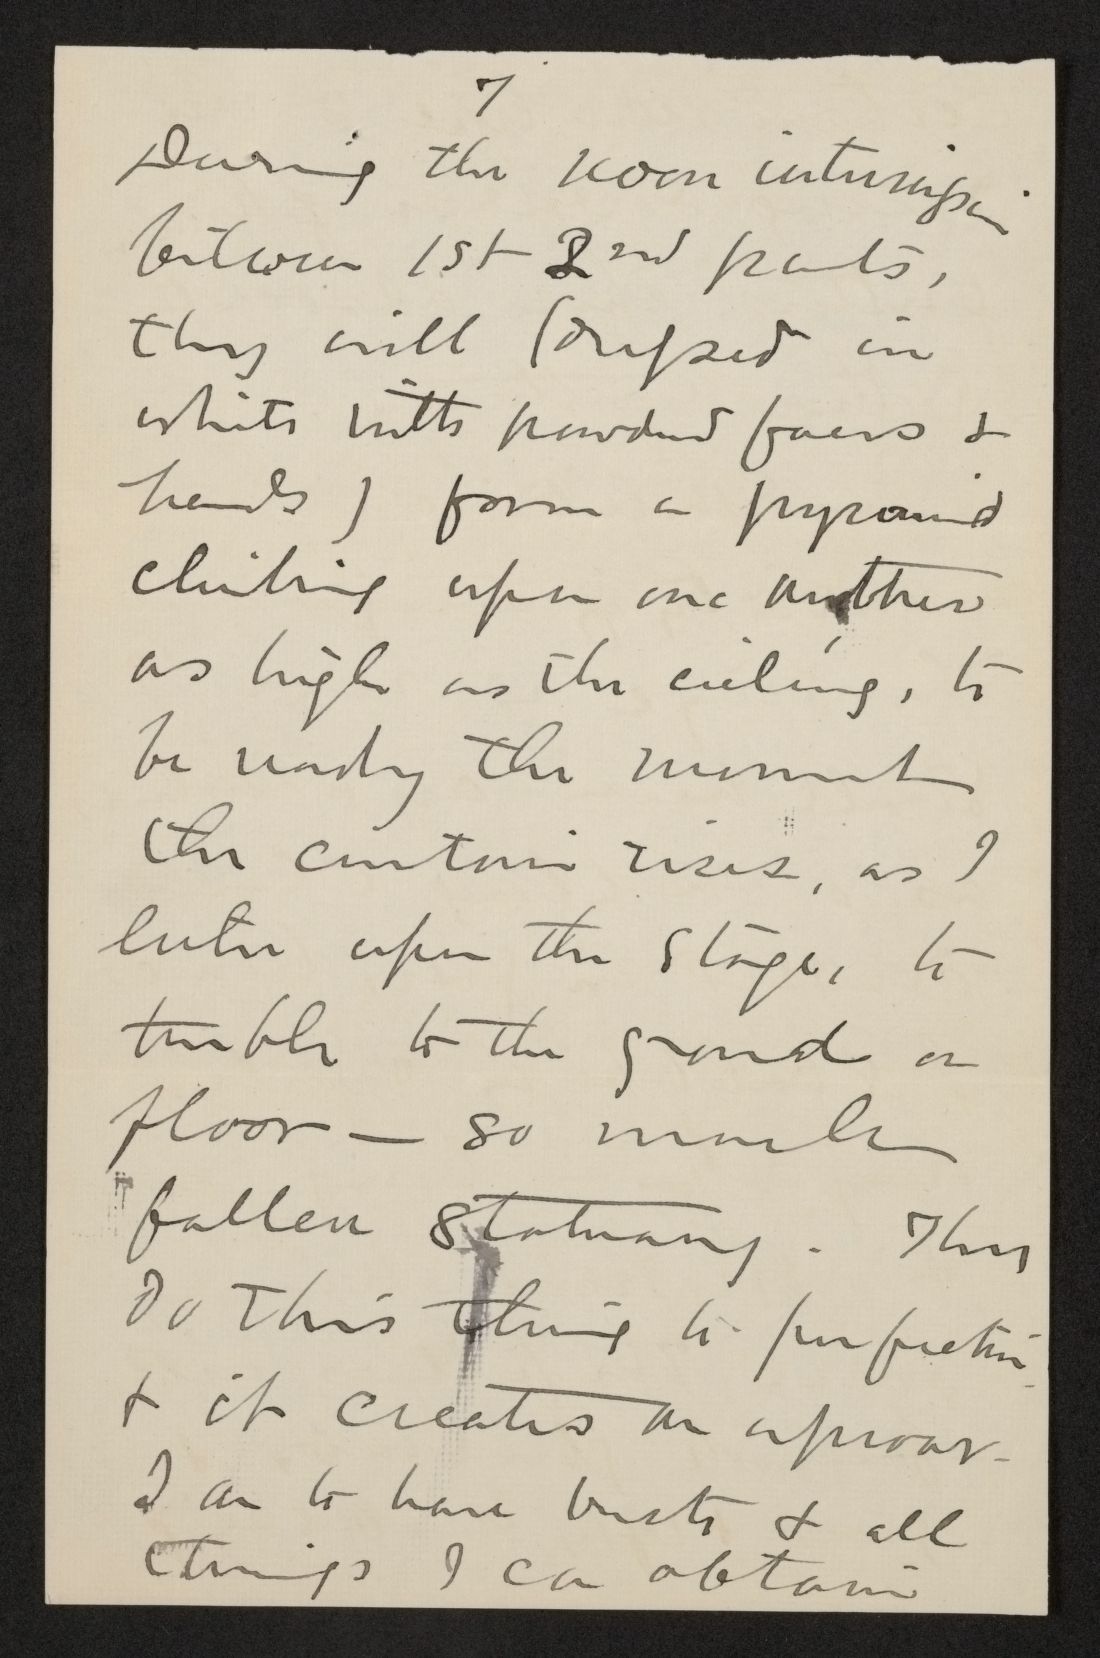 7
During the noon intermission
between 1st 2nd parts,
they will (dressed in
white with powdered faces &
hands) form a pyramid
climbing upon one another
as high as the ceiling, to
be ready the moment
the curtain rises, as I
enter upon the stage, to
tumble to the ground or
floor — so much
fallen statuary. They
do this thing to perfection
& it creates an uproar.
I am to have busts & all
things I can obtain